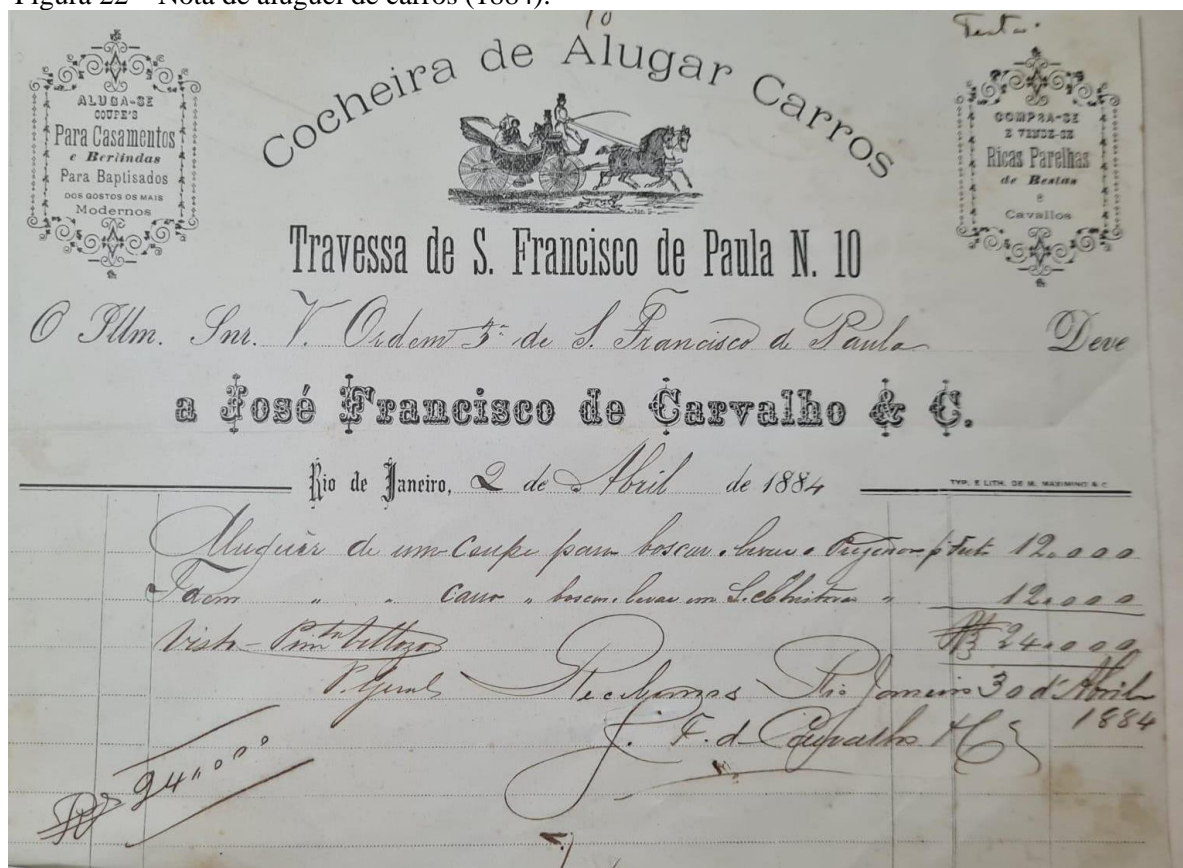 Figura 22 – Nota de aluguel de carros (1884).
10
Festa
ALUGA-SE
COUPE'S
Para Casamentos
e Berlindas
Para Baptisados
DOS GOSTOS OS MAIS
Modernos
Cocheira de Alugar Carros
COMPRA-SE
E VENDE-SE
Ricas Parelhas
de Bestas
e
Cavallos
Travessa de S. Francisco de Paula N. 10
O Illm. Snr. V. Ordem 3ª de S. Francisco de Paula Deve
a José Francisco de Carvalho & C.
Rio de Janeiro, 2 de Abril de 1884
TYP. E LITH. DE M. MAXIMINO & C
Aluguér de um Coupe para boscar levar o 12.000
Idem " " " boscar levar um " 12.000
Visto Rs 24.000
P. Geral Recebemos Rio Janeiro 30 d'Abril
1884
J. F. d Carvalho & C
Rs 24.000